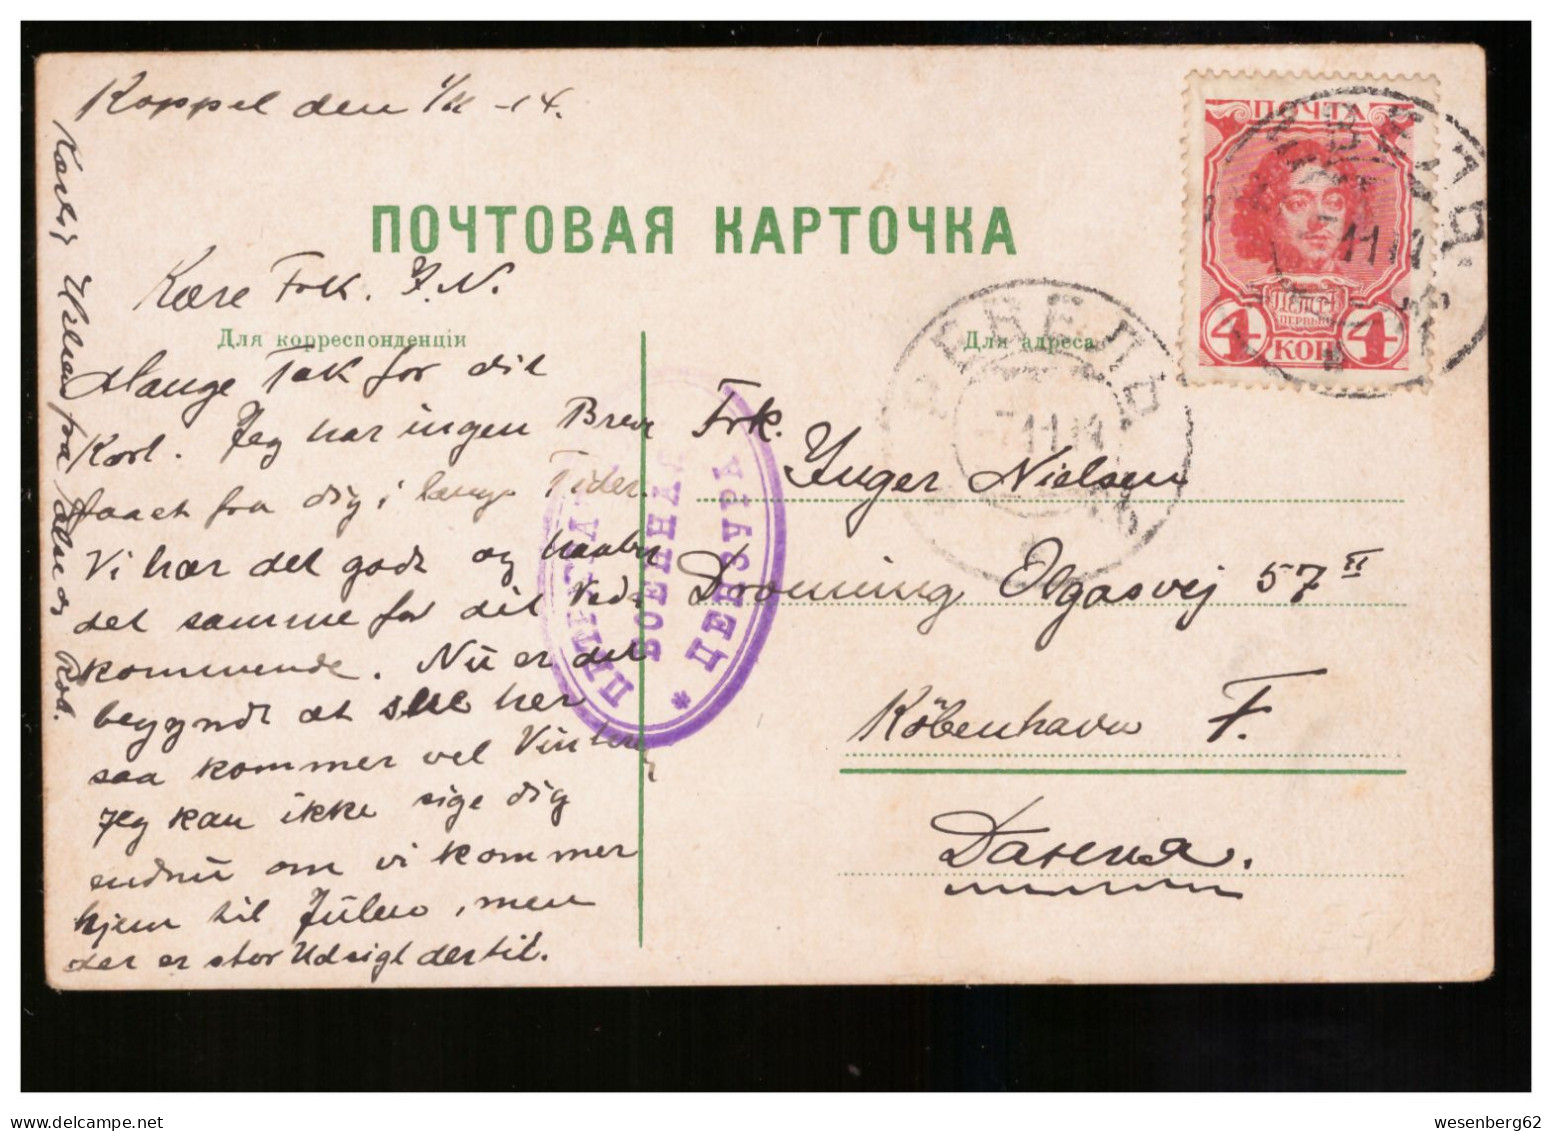 Koppel den 1/11 -14.
ПОЧТОВАЯ КАРТОЧКА
Kære Frk. I.N.
Для корреспонденціи
Mange Tak for dit
Kort. Jeg har ingen Brev
faaet fra dig i lange Tider.
Vi har det godt og haaber
det samme for dit Ved
kommende. Nu er det
begyndt at sne her
saa kommer vel Vinteren
Jeg kan ikke sige dig
endnu om vi kommer
hjem til Julen, men
der er stor Udsigt dertil.
Hilsen fra
Для адреса
Frk.
Inger Nielsen
Dronning Olgasvej 57 II
Köbenhavn F.
Дания.
ПОЧТА
4 КОП 4
РЕВЕЛЬ
-7 11 14
РЕВЕЛЬ
-7 11 14
ВОЕННАЯ
ЦЕНЗУРА
wesenberg62